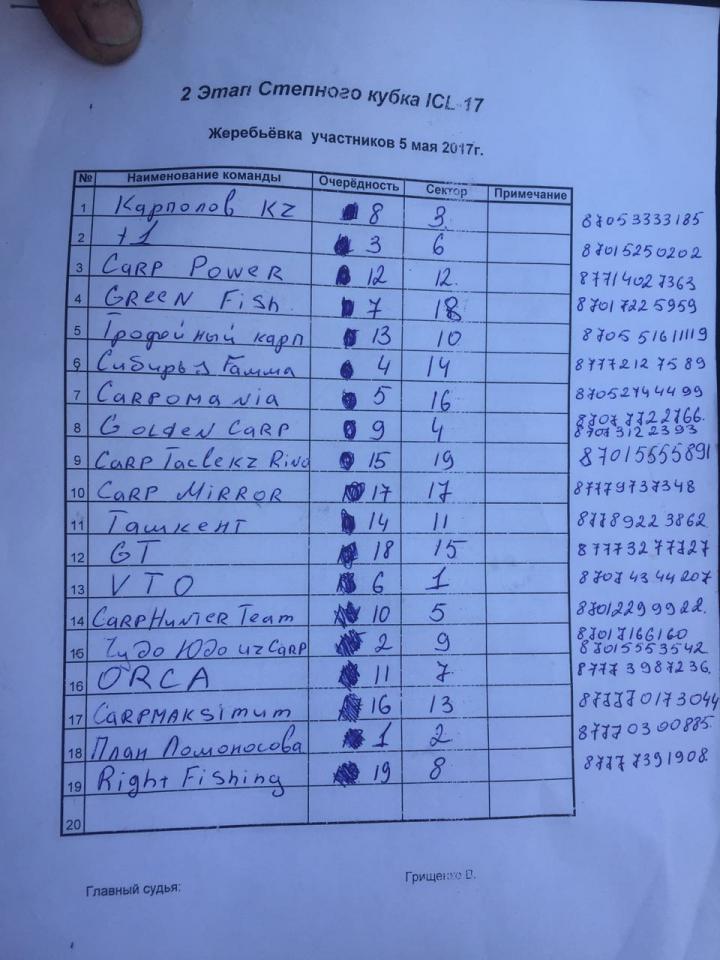 2 Этап Степного кубка ICL-17
Жеребьёвка участников 5 мая 2017г.
№ Наименование команды Очерёдность Сектор Примечание
1 Карполов KZ 8 3 87053333185
2 +1 3 6 87015250202
3 CARP POWER 12 12 87714027363
4 GReeN Fish 7 18 87017225959
5 Трофейный карп 13 10 87055161119
6 Сибирь-Гамма 4 14 87772127589
7 CARPOMANIA 5 16 87052744499
8 GOLDEN CARP 9 4 87077722766.
87073122393
9 CARP TacleKZ Rino 15 19 87015555891
10 CARP MIRROR 17 17 87779737348
11 Ташкент 14 11 87789223862
12 GT 18 15 87773277727
13 VTO 6 1 87074344207
14 CARPHUNTER Team 10 5 87012299922.
15 Чудо Юдо из CARP 2 9 87017166160
87015553542
16 ORCA 11 7 87773987236.
17 CARPMAKSimum 16 13 877770173044
18 План Ломоносова 1 2 87770300885.
19 Right Fishing 19 8 87777391908.
20
Главный судья: Грищенко В.